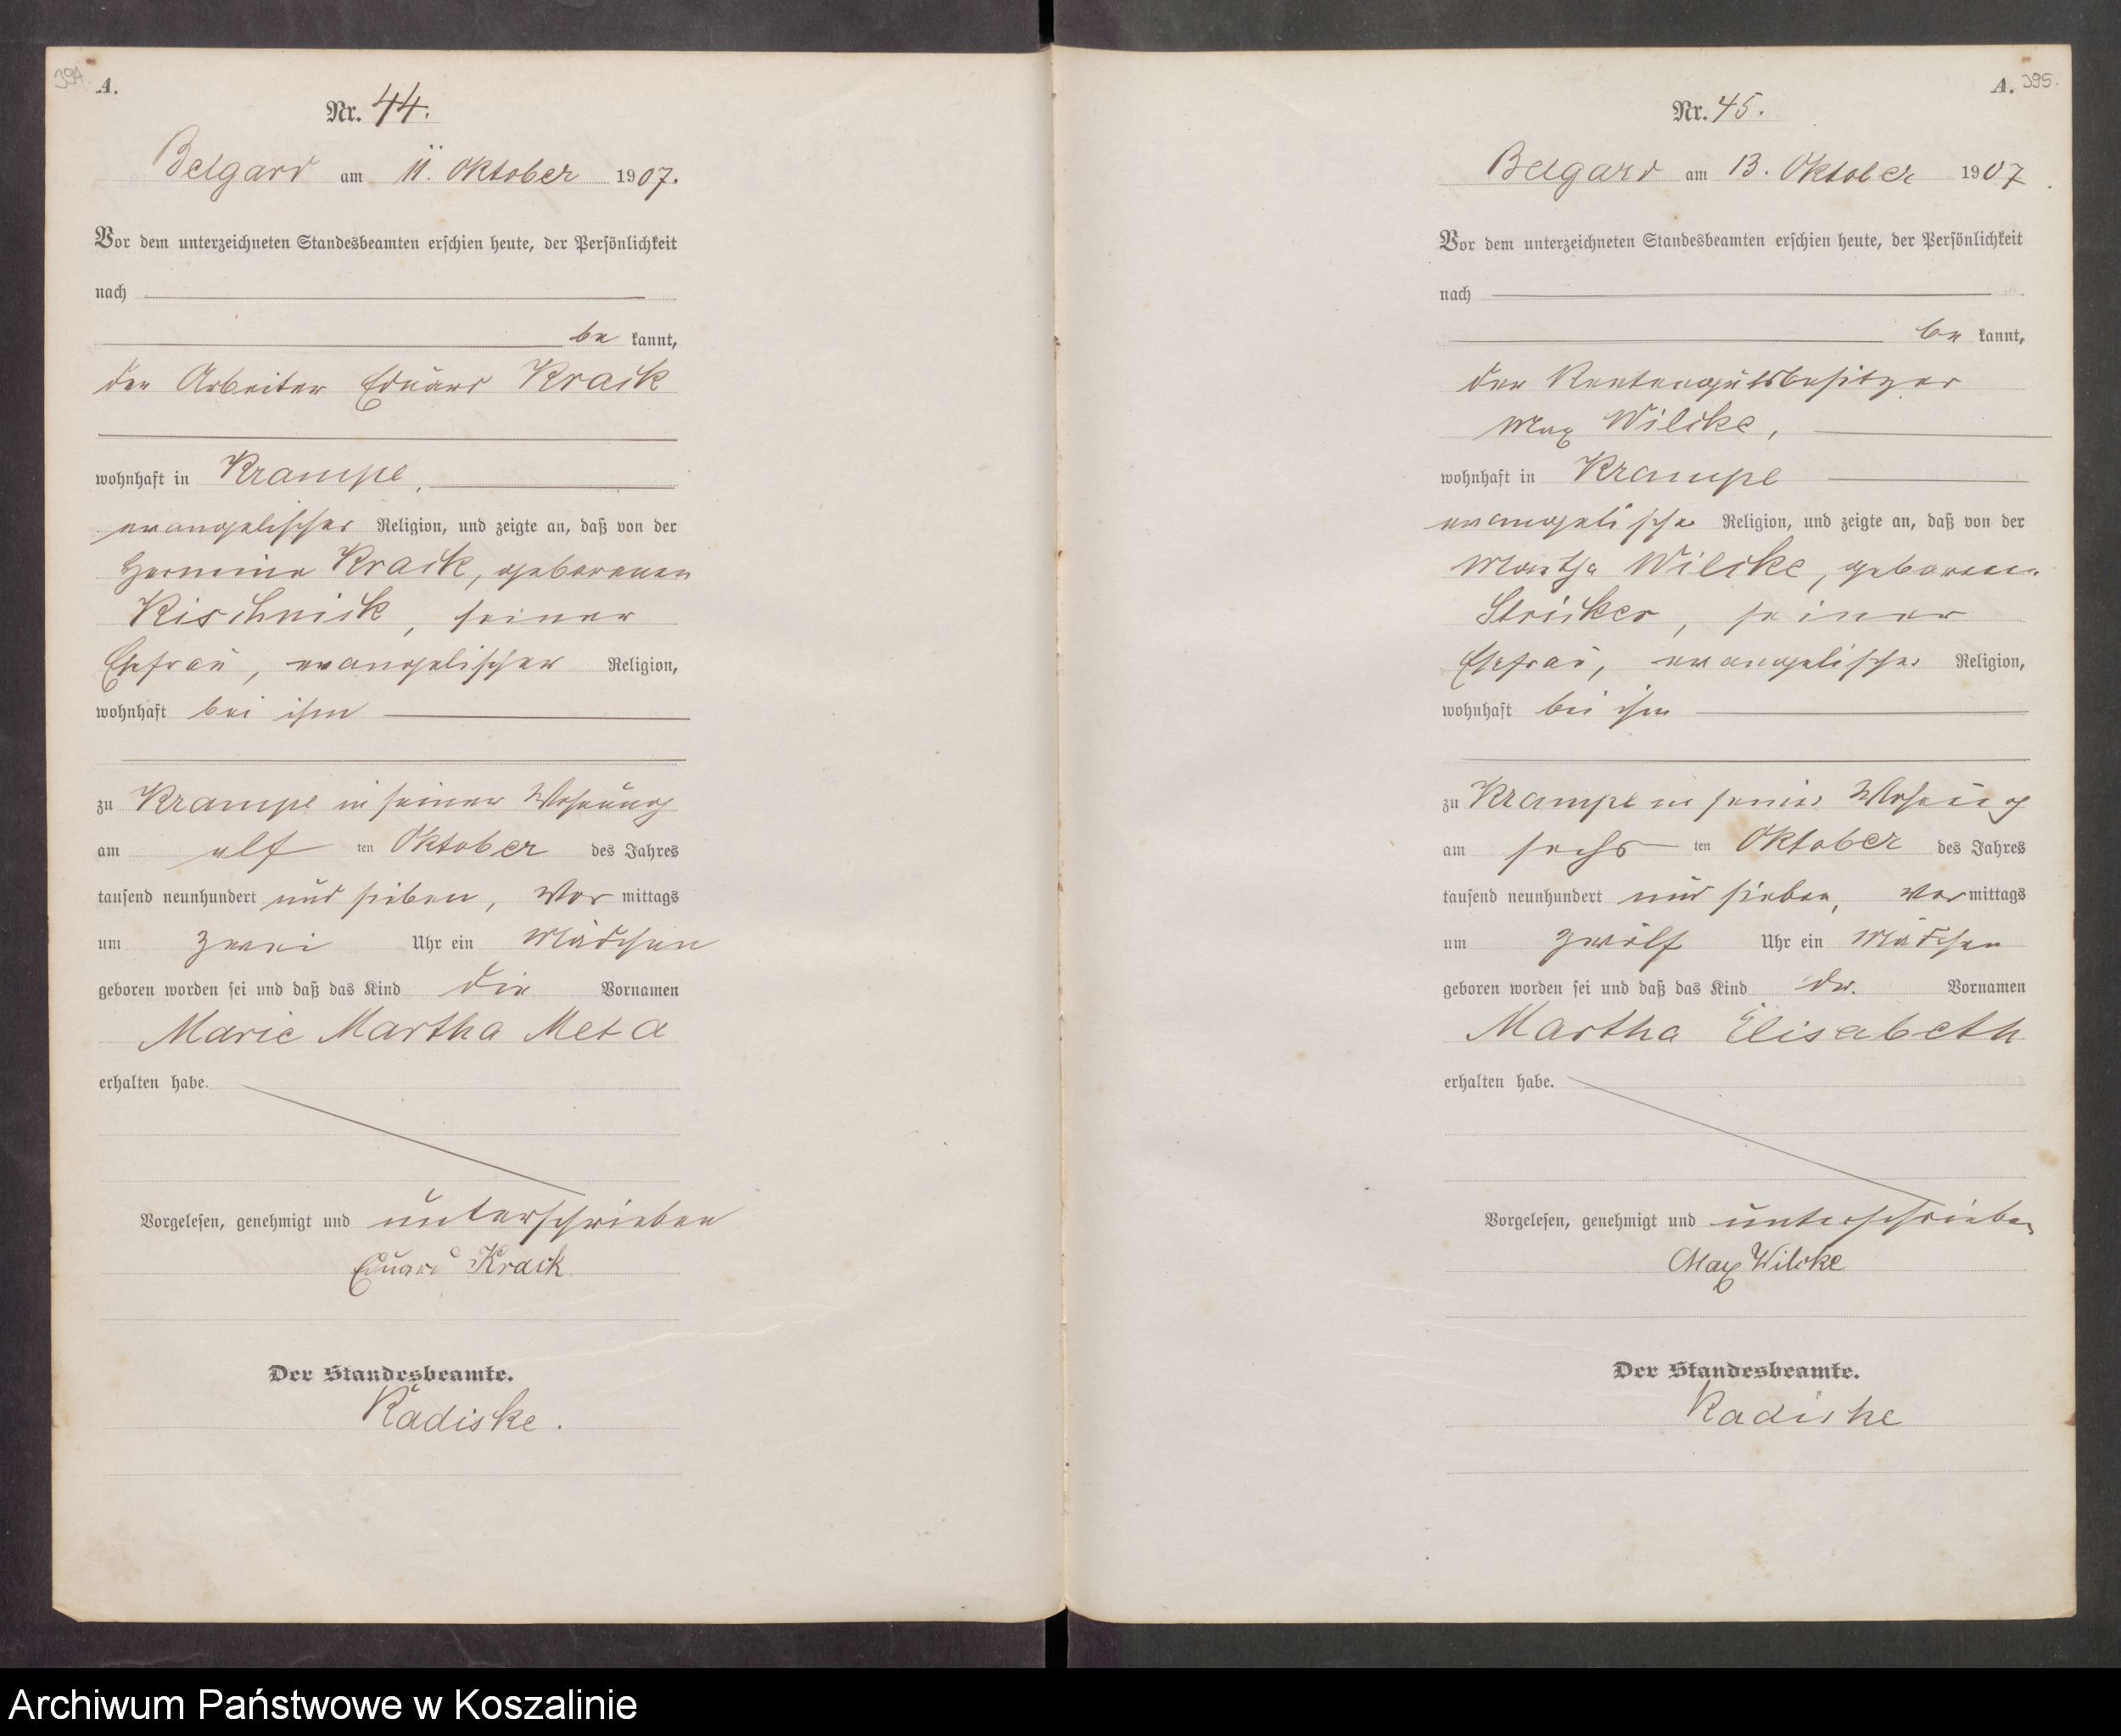 394.
A.
Nr. 44.
Belgard am 11. Oktober 1907.
Vor dem unterzeichneten Standesbeamten erschien heute, der Persönlichkeit
nach
be kannt,
der Arbeiter Eduard Krack
wohnhaft in Krampe,
evangelischer Religion, und zeigte an, daß von der
Hermine Krack, geborenen
Kischnick, seiner
Ehefrau, evangelischer Religion,
wohnhaft bei ihm
zu Krampe in seiner Wohnung
am elf ten Oktober des Jahres
tausend neunhundert und sieben, Vor mittags
um zwei Uhr ein Mädchen
geboren worden sei und daß das Kind die Vornamen
Marie Martha Meta
erhalten habe.
Vorgelesen, genehmigt und unterschrieben
Eduard Krack
Der Standesbeamte.
Radiske.
A. 395.
Nr. 45.
Belgard am 13. Oktober 1907.
Vor dem unterzeichneten Standesbeamten erschien heute, der Persönlichkeit
nach
be kannt,
der Rentengutsbesitzer
Max Wilcke,
wohnhaft in Krampe
evangelischer Religion, und zeigte an, daß von der
Martha Wilcke, geborenen
Stricker, seiner
Ehefrau, evangelischer Religion,
wohnhaft bei ihm
zu Krampe in seiner Wohnung
am sechs ten Oktober des Jahres
tausend neunhundert und sieben, Vor mittags
um zwölf Uhr ein Mädchen
geboren worden sei und daß das Kind die Vornamen
Martha Elisabeth
erhalten habe.
Vorgelesen, genehmigt und unterschrieben
Max Wilcke
Der Standesbeamte.
Radiske
Archiwum Państwowe w Koszalinie